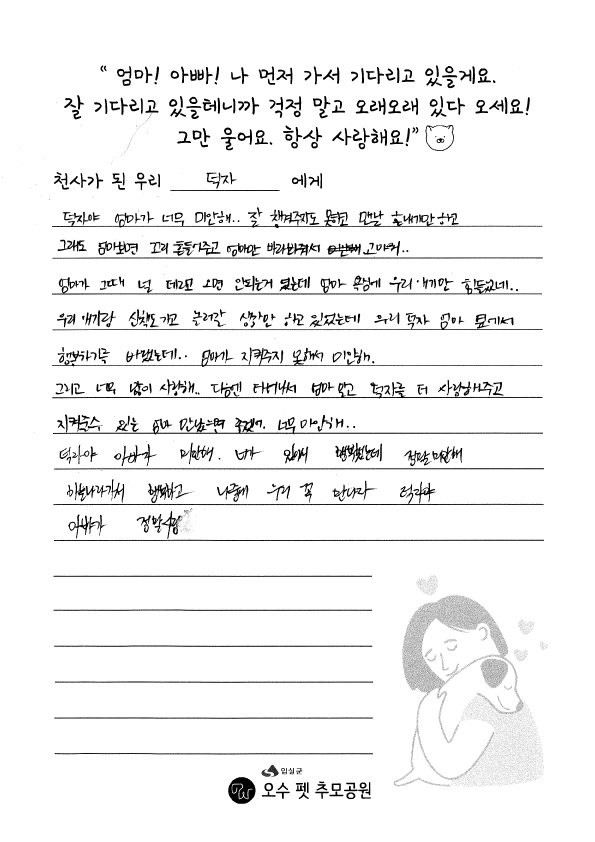 “ 엄마! 아빠! 나 먼저 가서 기다리고 있을게요.
잘 기다리고 있을테니까 걱정 말고 오래오래 있다 오세요!
그만 울어요. 항상 사랑해요!”
천사가 된 우리 덕자 에게
덕자야 엄마가 너무 미안해.. 잘 챙겨주지도 못하고 맨날 혼내기만 하고
그래도 엄마보면 꼬리 흔들어주고 엄마만 바라봐줘서 고마워..
엄마가 그때 널 데리고 오면 안되는거 였는데 엄마 욕심에 우리 애기만 힘들었네..
우리 애기랑 산책도 가고 놀러갈 생각만 하고 있었는데 우리 덕자 엄마 옆에서
행복하기를 바랬는데.. 엄마가 지켜주지 못해서 미안해.
그리고 너무 많이 사랑해.. 다음엔 태어나서 엄마 말고 덕자를 더 사랑해주고
지켜줄수 있는 엄마 만났으면 좋겠어. 너무 미안해..
덕자야 아빠가 미안해. 너가 있어서 행복했는데 정말 미안해
하늘나라가서 행복하고 나중에 우리 꼭 만나자 덕자야
아빠가 정말
임실군
오수 펫 추모공원